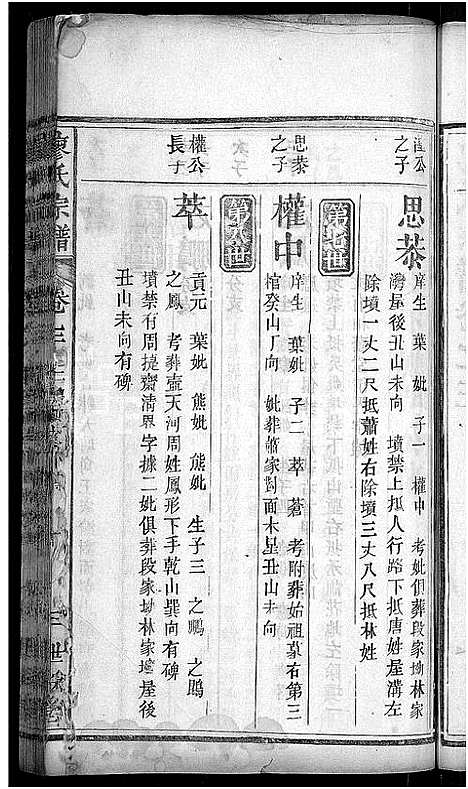 公
之子
思恭
庠生 葉妣 子一 權中 考妣俱葬段家坳林家
灣屋後丑山未向 墳禁上抵人行路下抵唐姓屋溝左
除墳一丈二尺抵蕭姓右除墳三丈八尺抵林姓
第七世
思恭
之子
權中
庠生 葉妣 子二 萃 蒼 考附葬始祖墓右第三
棺癸山丁向 妣葬蕭家對面木星丑山未向
第八世
權公
長子
萃
貢元 葉妣 熊妣 熊妣 生子三 之鵬 之鵾
之鳳 考葬壺天河周姓鳳形下手乾山巽向有碑
墳禁有周提齋清界字據二妣俱葬段家坳林家塆屋後
丑山未向有碑
廖氏宗譜
卷三
三世